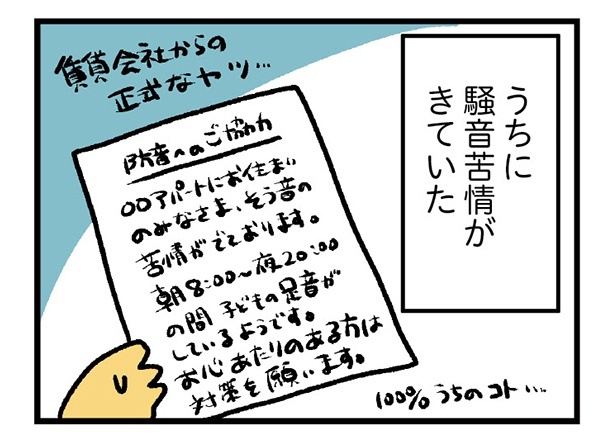 うちに
騒音苦情が
きていた
賃貸会社からの
正式なヤツ…
防音へのご協力
〇〇アパートにお住まい
のみなさま、そう音の
苦情がでております。
朝8:00〜夜20:00
の間 子どもの足音が
しているようです。
お心あたりのある方は
対策を願います。
100%うちのコト…